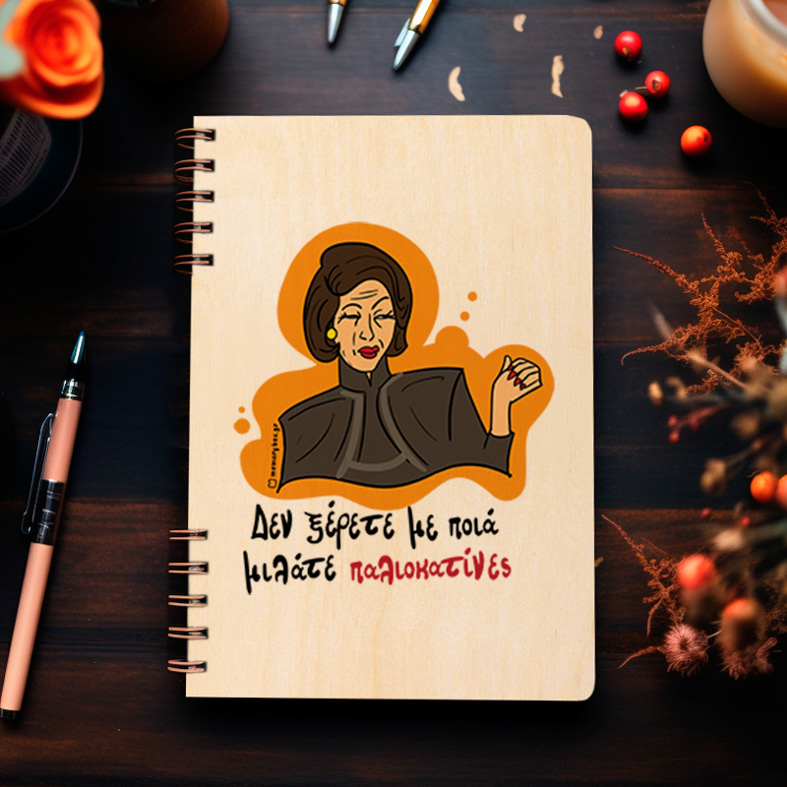 memorybox.gr
Δεν ξέρετε με ποιά
μιλάτε παλιοκατίνες